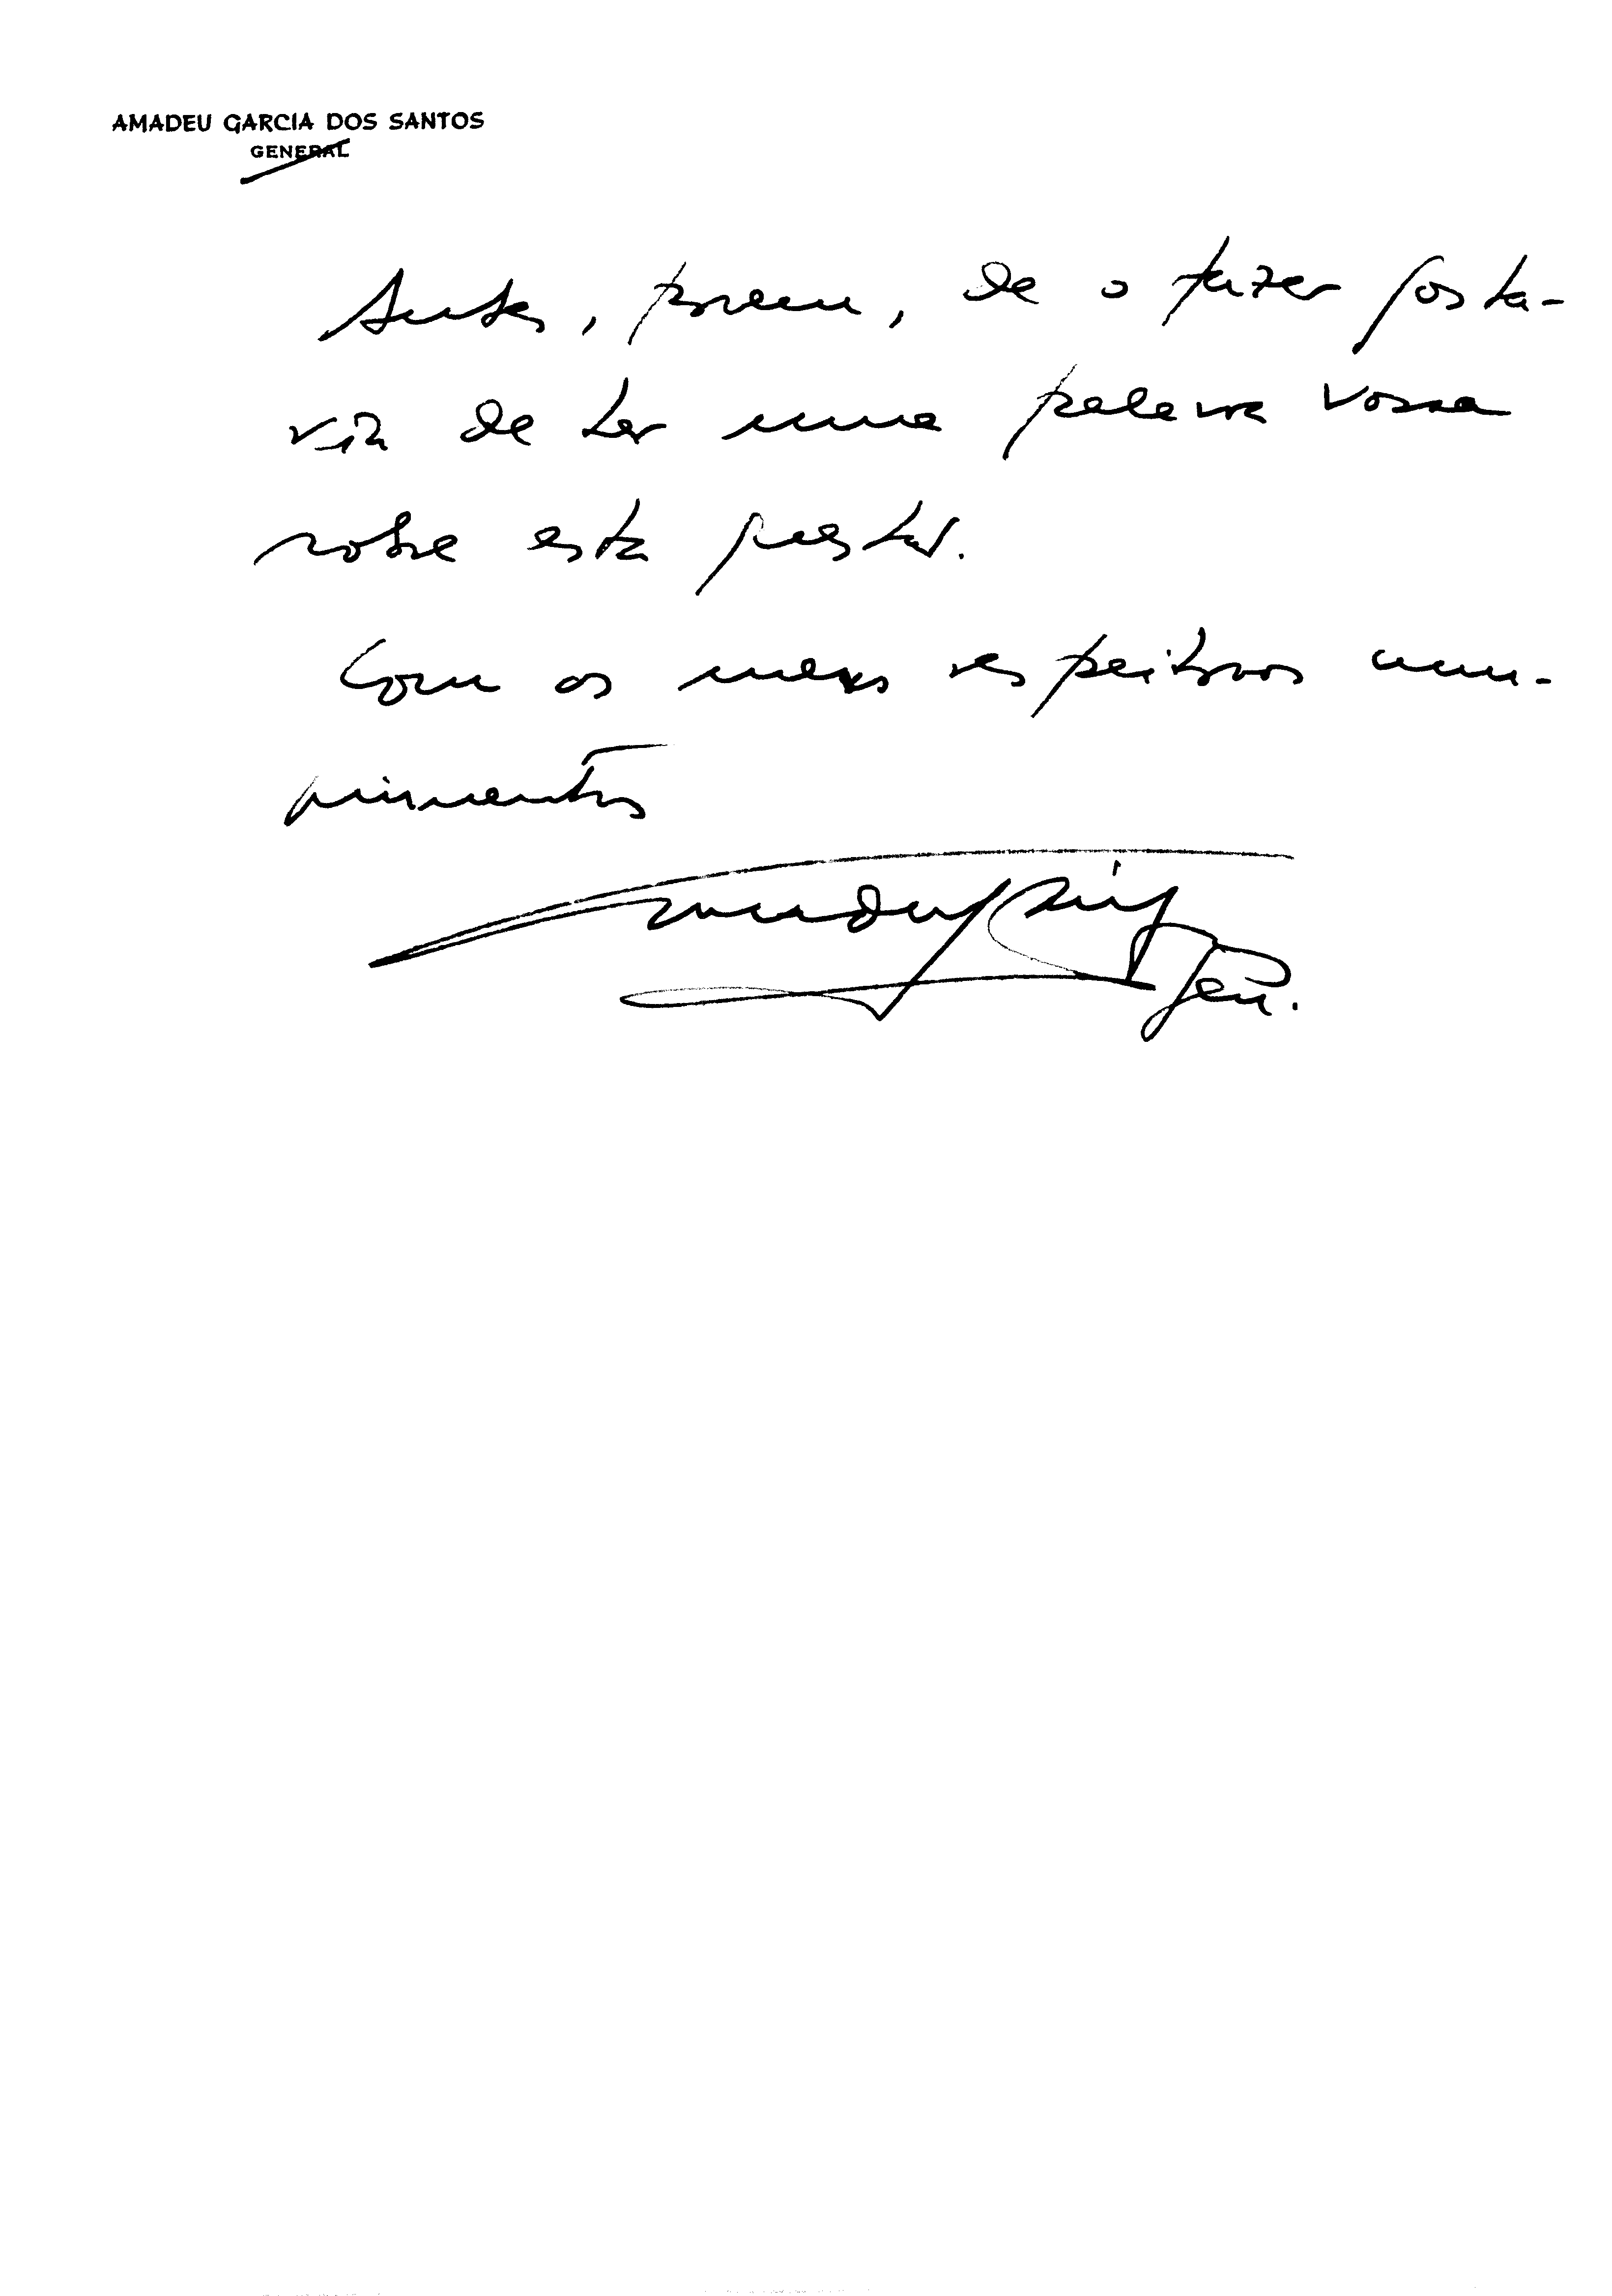 AMADEU GARCIA DOS SANTOS
GENERAL
Antes, porem, de o fazer gosta-
ria de ter uma palavra vossa
sobre esta questão.
Com os meus respeitosos cum-
primentos
Gen.